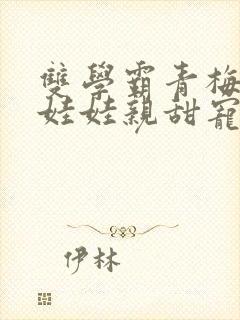 雙學霸青梅
娃娃親甜寵
伊林